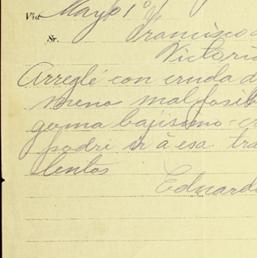 Mayo 1º/
Sr. Francisco
Victoria
Arreglé con cruda d
menos mal posib
goma bajísimo - cr
podré ir á esa tra
lentos
Eduardo